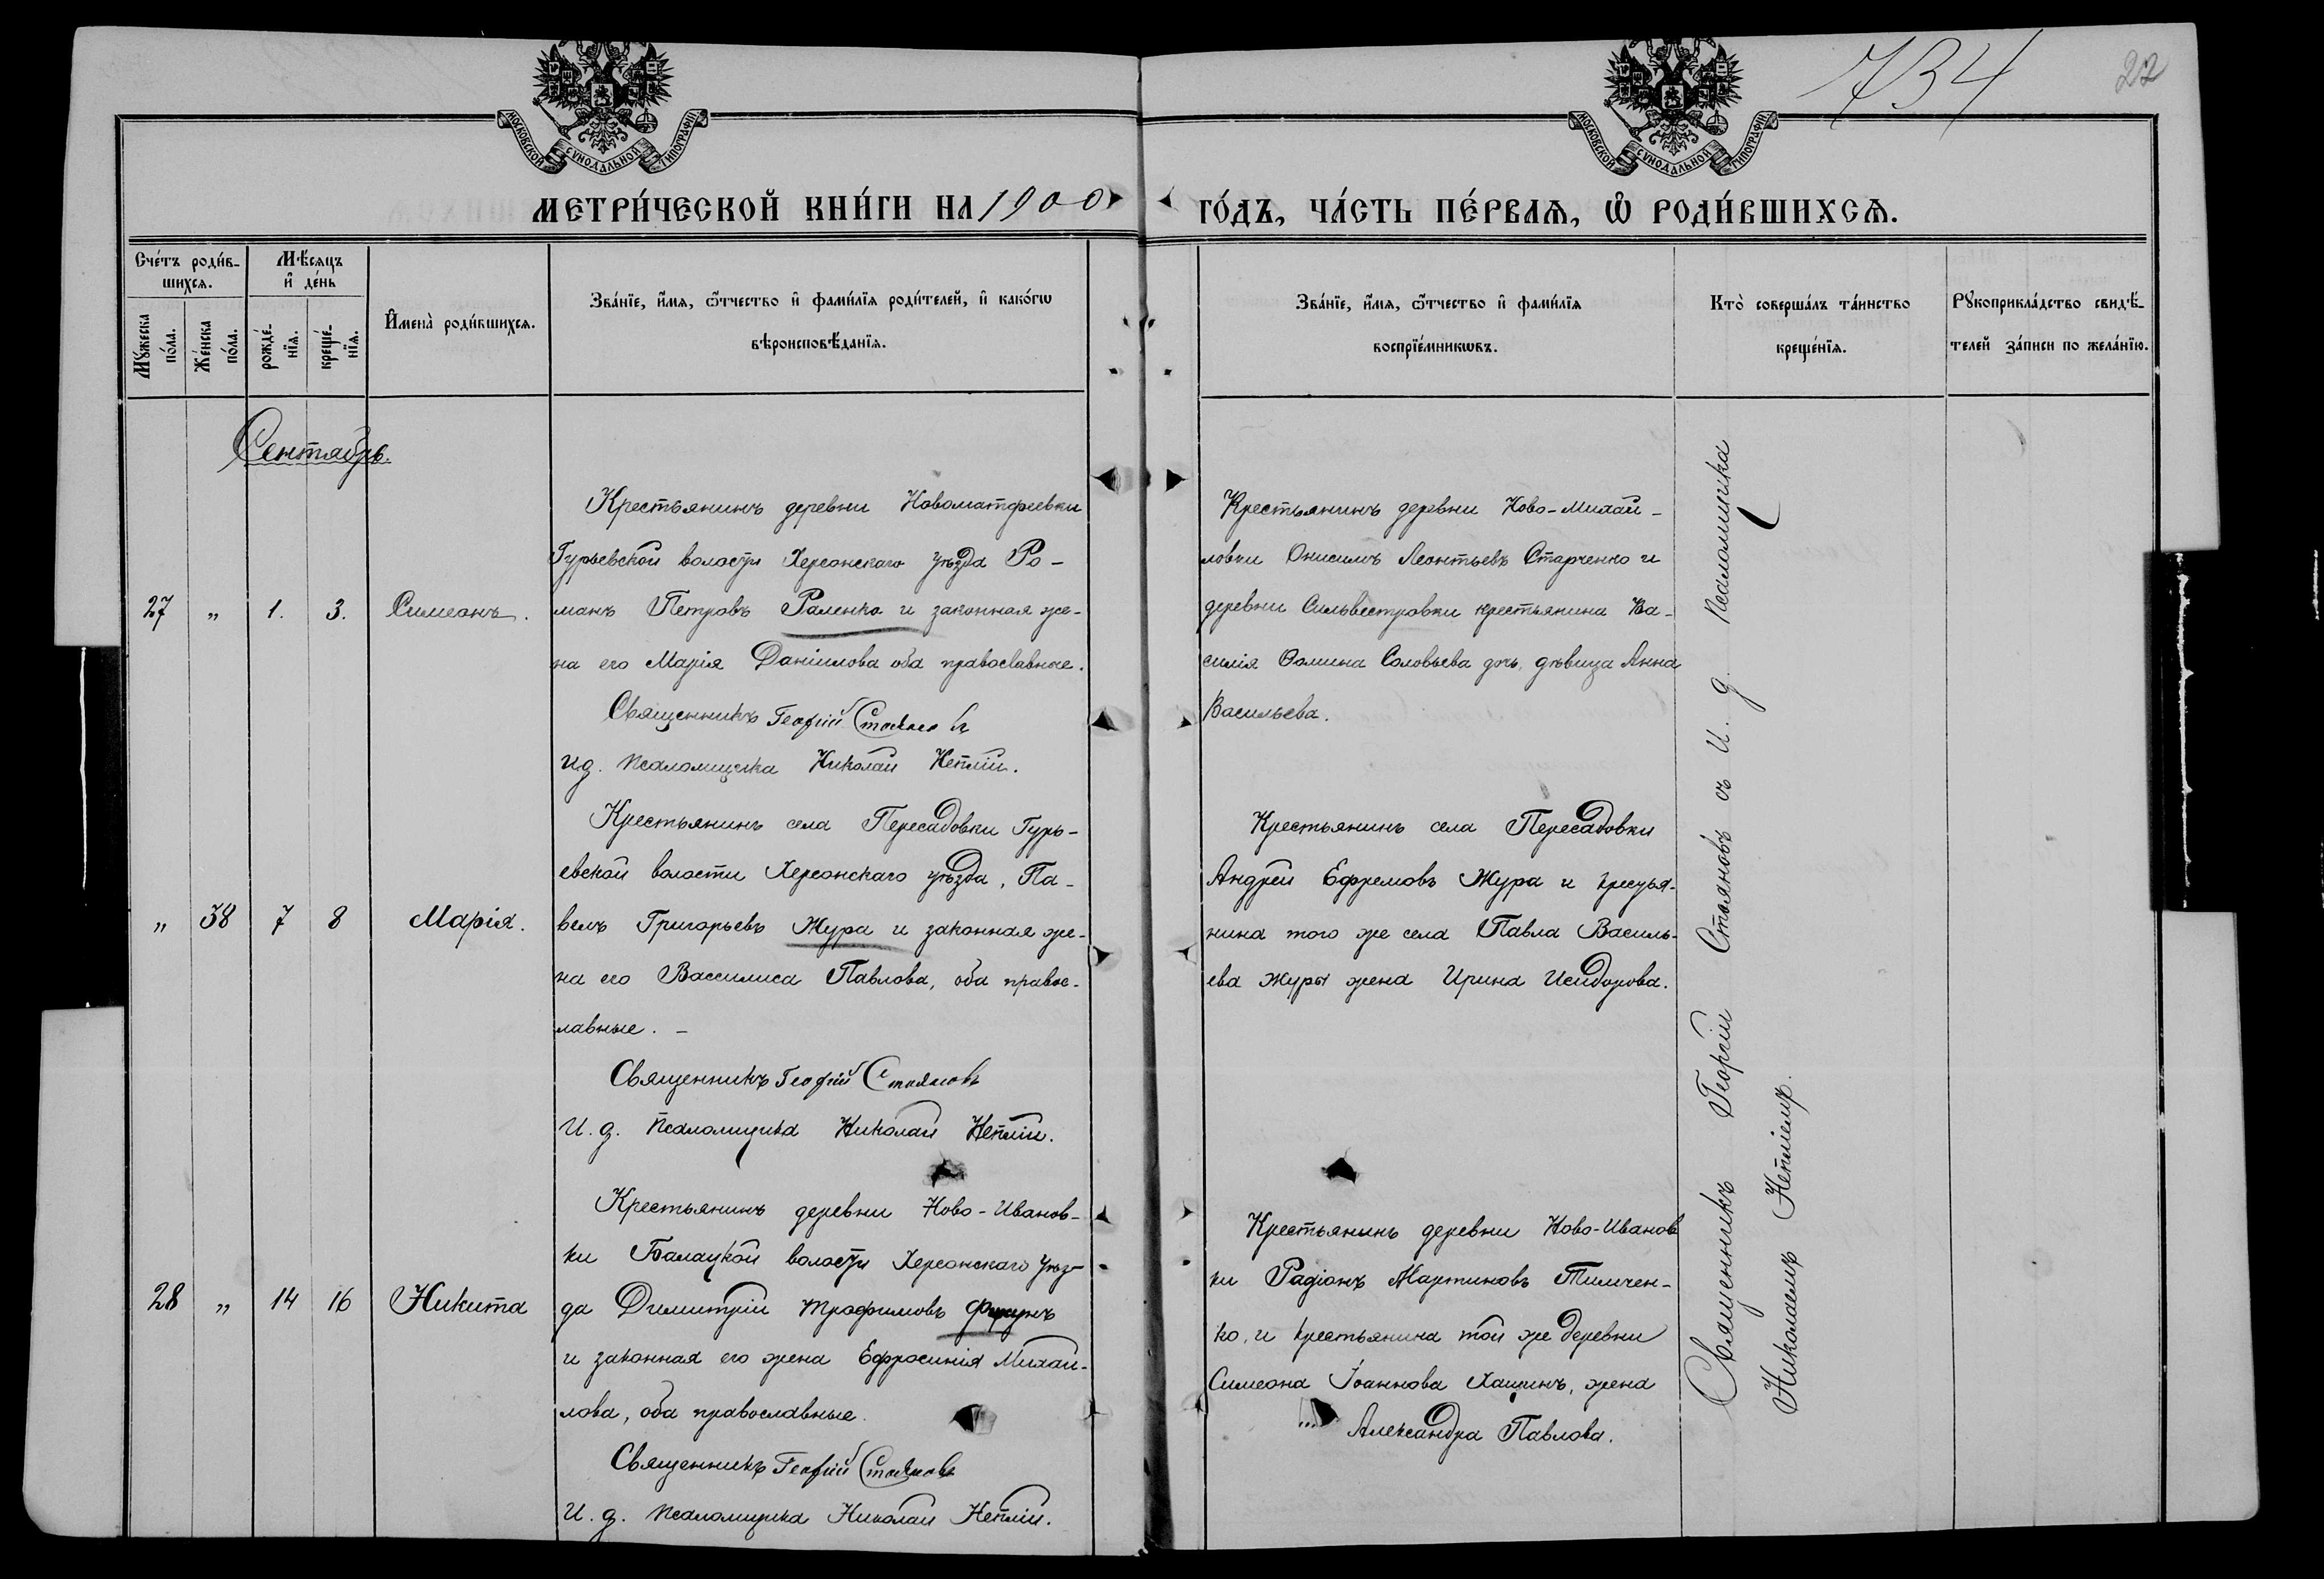 734
22
МОСКОВСКОЙ СѴНОДАЛЬНОЙ ТИПОГРАФІИ
МОСКОВСКОЙ СѴНОДАЛЬНОЙ ТИПОГРАФІИ
МЕТРИ́ЧЕСКОЙ КНИ́ГИ НА 1900
ГО́ДЪ, ЧА́СТЬ ПЕ́РВАѦ, Ѽ РОДИ́ВШИХСѦ.
Сче́тъ роди́в-
шихсѧ.
Мꙋжеска
по́ла.
Же́нска
по́ла.
Мѣ́сѧцъ
и҆ де́нь
рожде́-
нїѧ.
креще́-
нїѧ.
И҆мена̀ роди́вшихсѧ.
Зва́нїе, и҆́мѧ, ѻ҆́тчество и҆ фами́лїѧ роди́телей, и҆ како́гѡ
вѣроисповѣ́данїѧ.
Зва́нїе, и҆́мѧ, ѻ҆́тчество и҆ фами́лїѧ
воспрїе́мникѡвъ.
Кто̀ соверша́лъ та́инство
креще́нїѧ.
Рꙋкоприкла́дство свидѣ́-
телей за́писи по жела́нїю.
Сентябрь.
27 „ 1. 3. Симеонъ.
Крестьянинъ деревни Новоматфеевки
Гурьевской волости Херсонскаго уѣзда Ро-
манъ Петровъ Раленко и законная же-
на его Марія Даніилова оба православные.
Священникъ Георгій Стояновъ
И.д. псаломщика Николай
Крестьянинъ деревни Ново-Михай-
ловки Онисимъ Леонтьевъ Старченко и
деревни Сильвестровки крестьянина Ва-
силія Ѳомина Соловьева дочь, дѣвица Анна
Васильева.
„ 38 7 8 Марія.
Крестьянинъ села Пересадовки Гурь-
евской волости Херсонскаго уѣзда, Па-
велъ Григорьевъ Жура и законная же-
на его Вассилиса Павлова, оба правос-
лавные. –
Священникъ Георгій Стояновъ
И. д. псаломщика Николай
Крестьянинъ села Пересадовки
Андрей Ефремовъ Жура и крестья-
нина того же села Павла Василь-
ева Журы жена Ирина Исидорова.
28 „ 14 16 Никита
Крестьянинъ деревни Ново-Иванов-
ки Балацкой волости Херсонскаго уѣз-
да Димитрій Трофимовъ
и законная его жена Ефросинія Михай-
лова, оба православные.
Священникъ Георгій Стояновъ
И. д. псаломщика Николай
Крестьянинъ деревни Ново-Иванов
ки Радіонъ Мартиновъ Тимчен-
ко, и крестьянина той же деревни
Симеона Іоаннова жена
Александра Павлова.
Священникъ Георгій Стояновъ съ И. д. псаломщика
Николаемъ